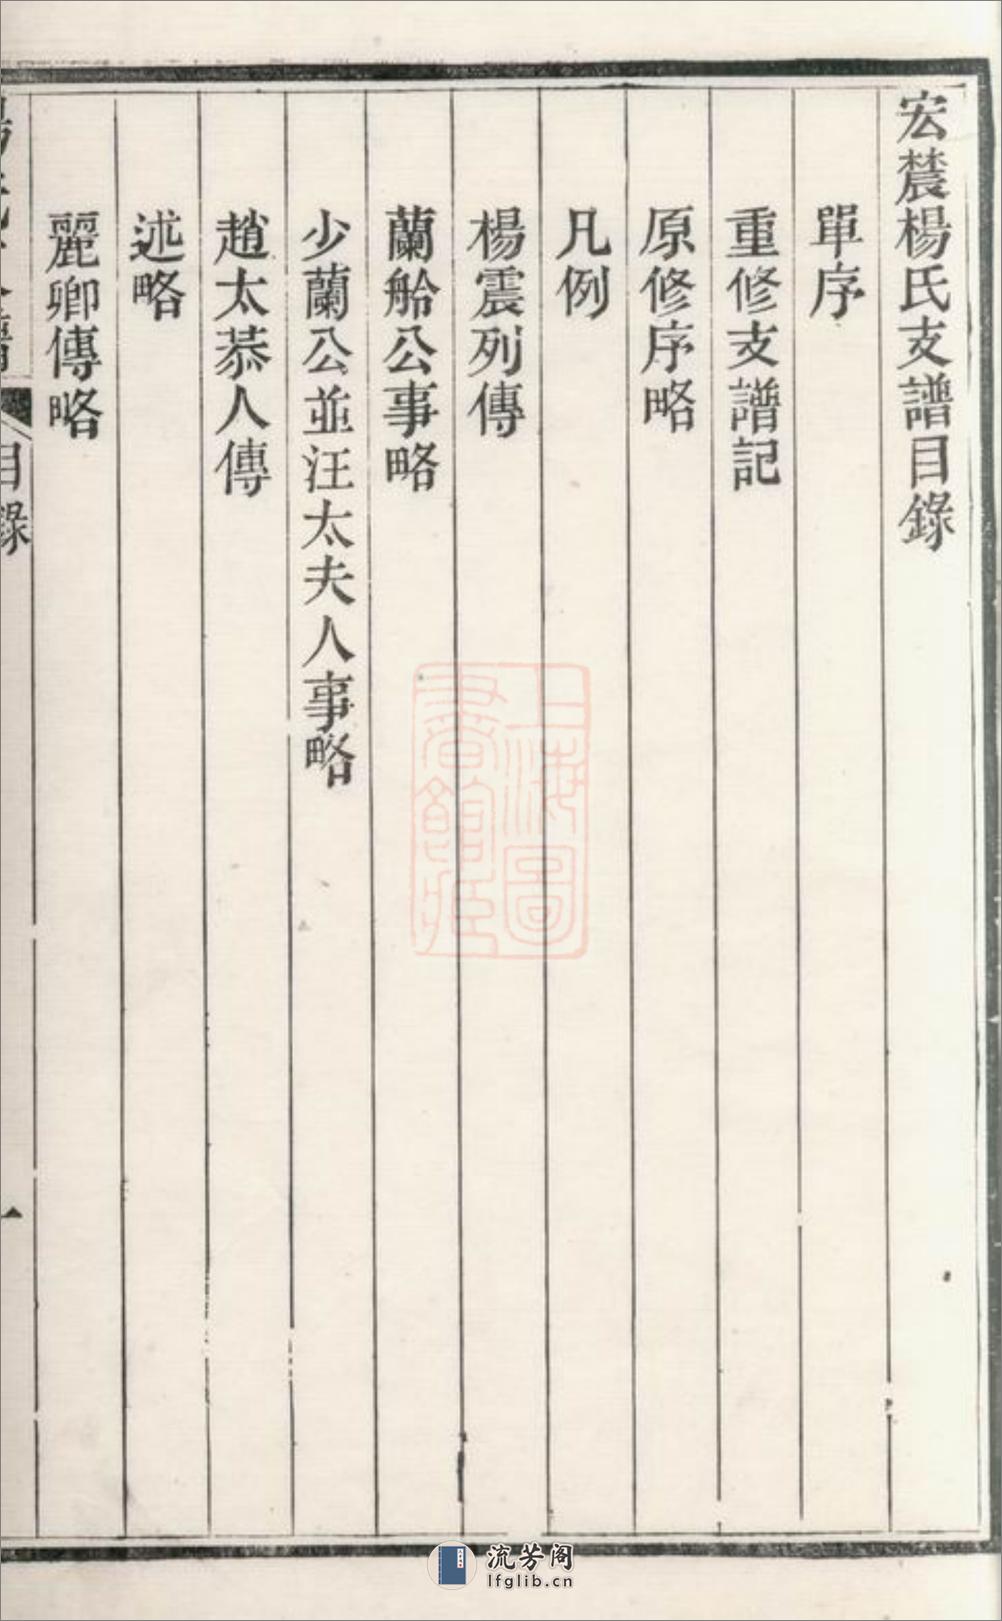 宏農楊氏支譜目錄
單序
重修支譜記
原修序略
凡例
楊震列傳
蘭舲公事略
少蘭公並汪太夫人事略
趙太恭人傳
述略
麗卿傳略
目錄
一
上海圖
書館藏
流芳阁
lfglib.cn